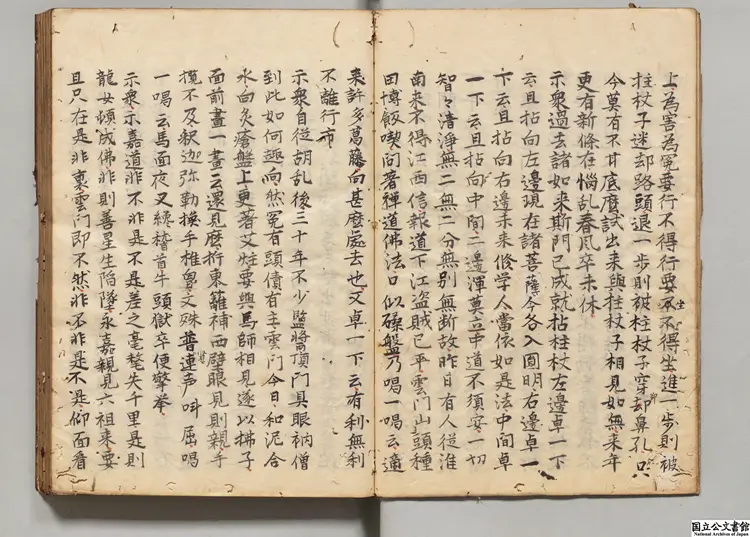 上為害為冤要行不得行要坐不得坐進一步則被
拄杖子迷却路頭退一步則被拄杖子穿却鼻孔只
今莫有不甘底麼試出来與拄杖子相見如無来年
更有新條在惱乱春風卒未休
示衆過去諸如来斯門已成就拈拄杖左邊卓一下
云且拈向左邊現在諸菩薩今各入圓明右邊卓一
下云且拈向右邊未来修学人當依如是法中間卓
一下云且拈向中間二邊渾莫立中道不須安一切
智々清淨無二無二分無別無断故昨日有人従淮
南来不得江西信報道下江盗賊已平雲門山頭種
田博飯喫问著禅道佛法口似磉盤乃喝一喝云適
来許多葛藤向甚麼處去也又卓一下云有利無利
不離行市
示衆自従胡乱後三十年不少监酱頂门具眼衲僧
到此如何趣向然冤有頭債有主雲门今日和泥合
水向灸瘡盤上更著艾炷要與馬師相見遂以拂子
面前畫一畫云還見麼拆東籬補西壁眼見則親手
攬不及釈迦弥勒摸手椎胷文殊普連声叫屈喝
一喝云馬面夜叉纔稽首牛頭獄卒便擎拳
示衆示嘉道非不非是不是差之毫氂失千里是則
龍女頓成佛非則善星生陥墜永嘉親見六祖来要
且只在是非裏雲门即不然非不非是不是仰面看
国立公文書館
National Archives of Japan